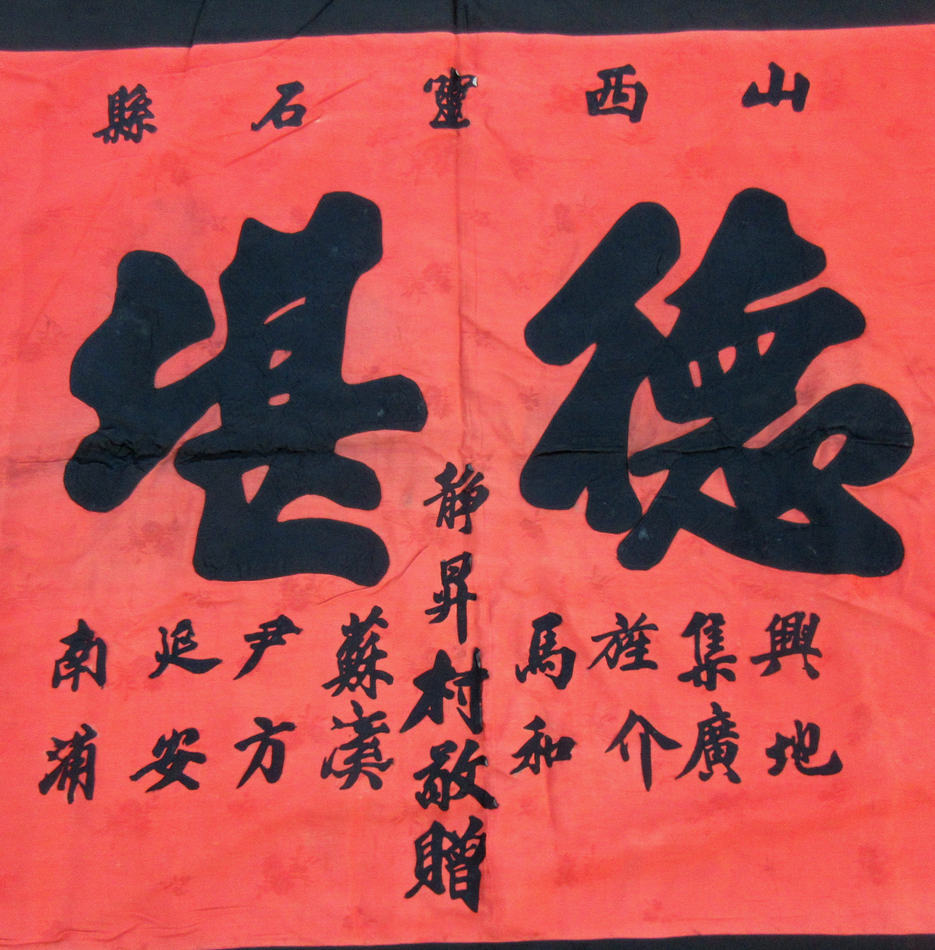 山西靈石縣
德堪
興地
集廣
旌介
馬和
静昇村敬贈
蘇溪
尹方
延安
南浦